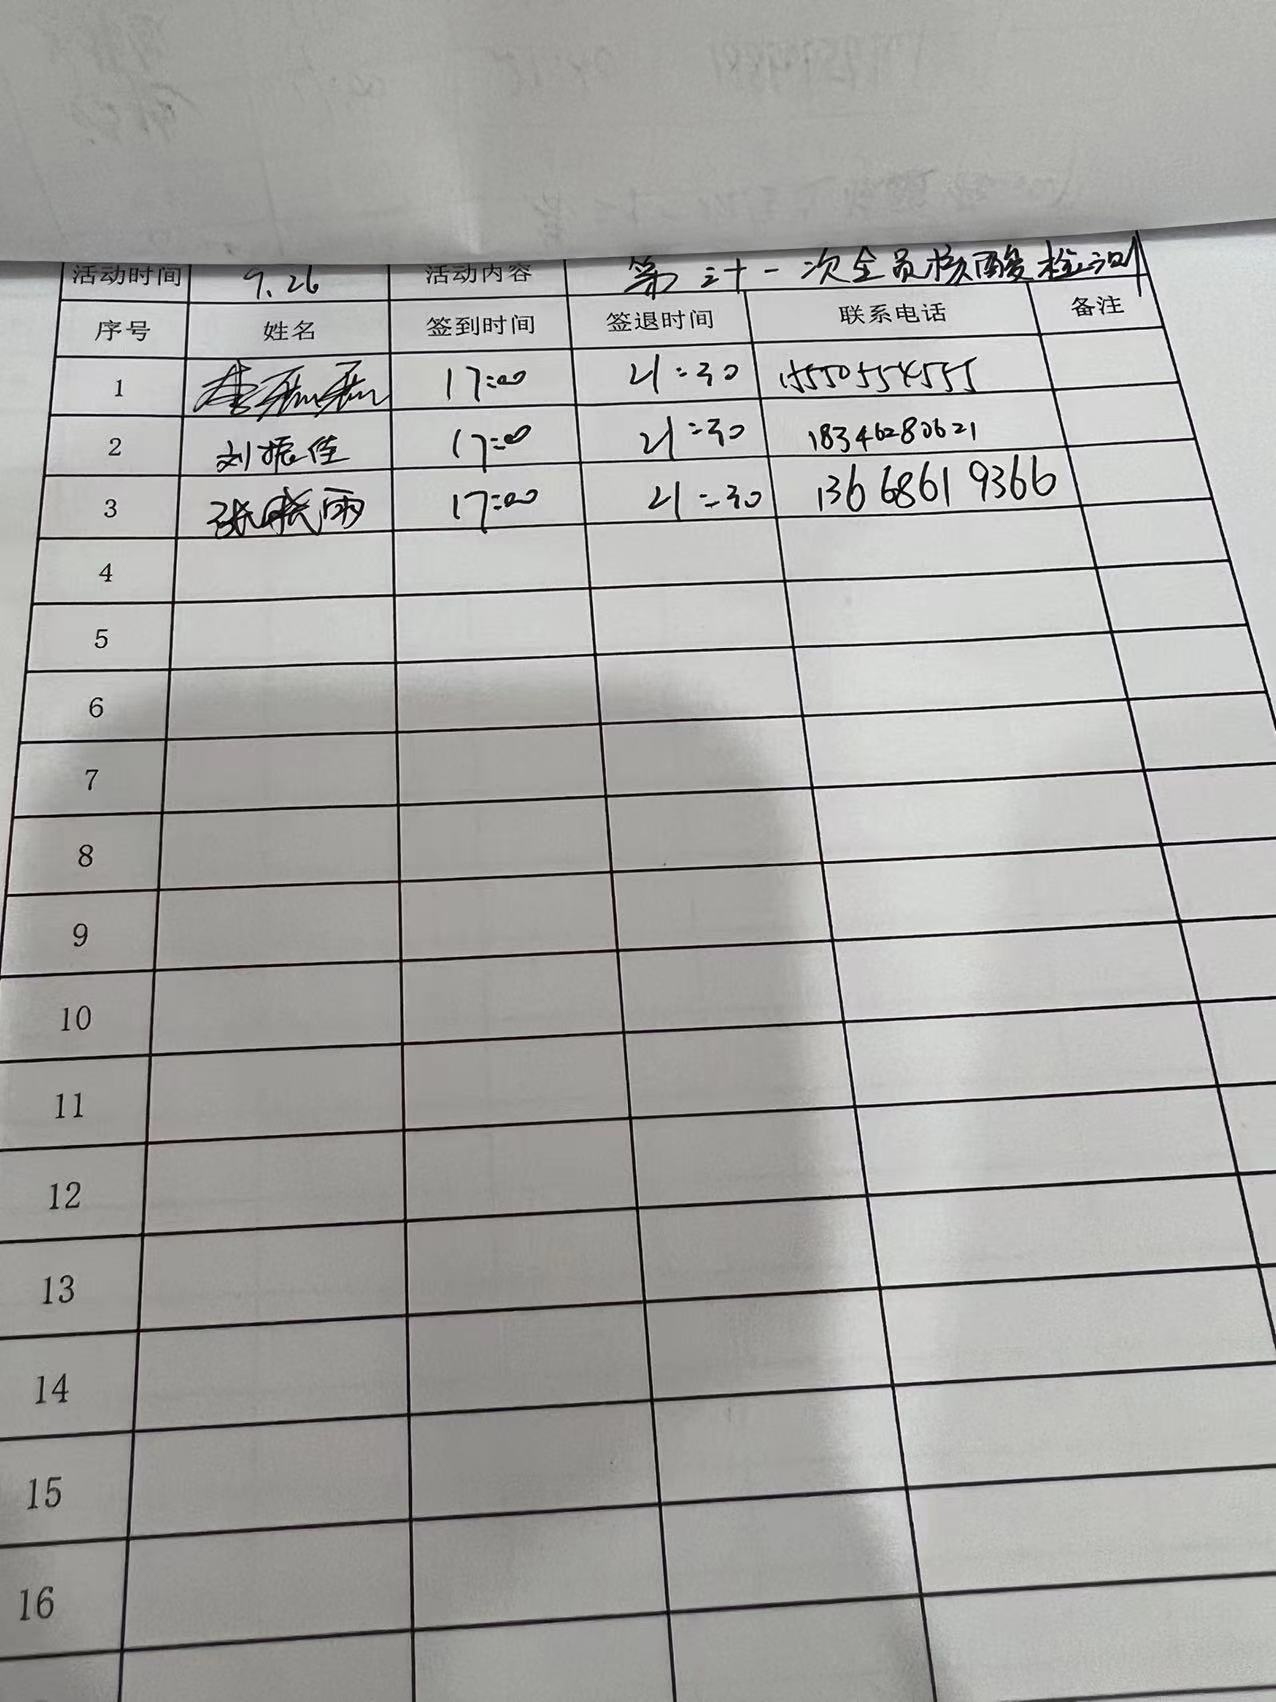 活动时间 9.26 活动内容 第三十一次全员核酸检测
序号 姓名 签到时间 签退时间 联系电话 备注
1 李 17:00 21:30 15550554555
2 刘振佳 17:00 21:30 18346280621
3 张晓雨 17:00 21:30 13668619366
4
5
6
7
8
9
10
11
12
13
14
15
16